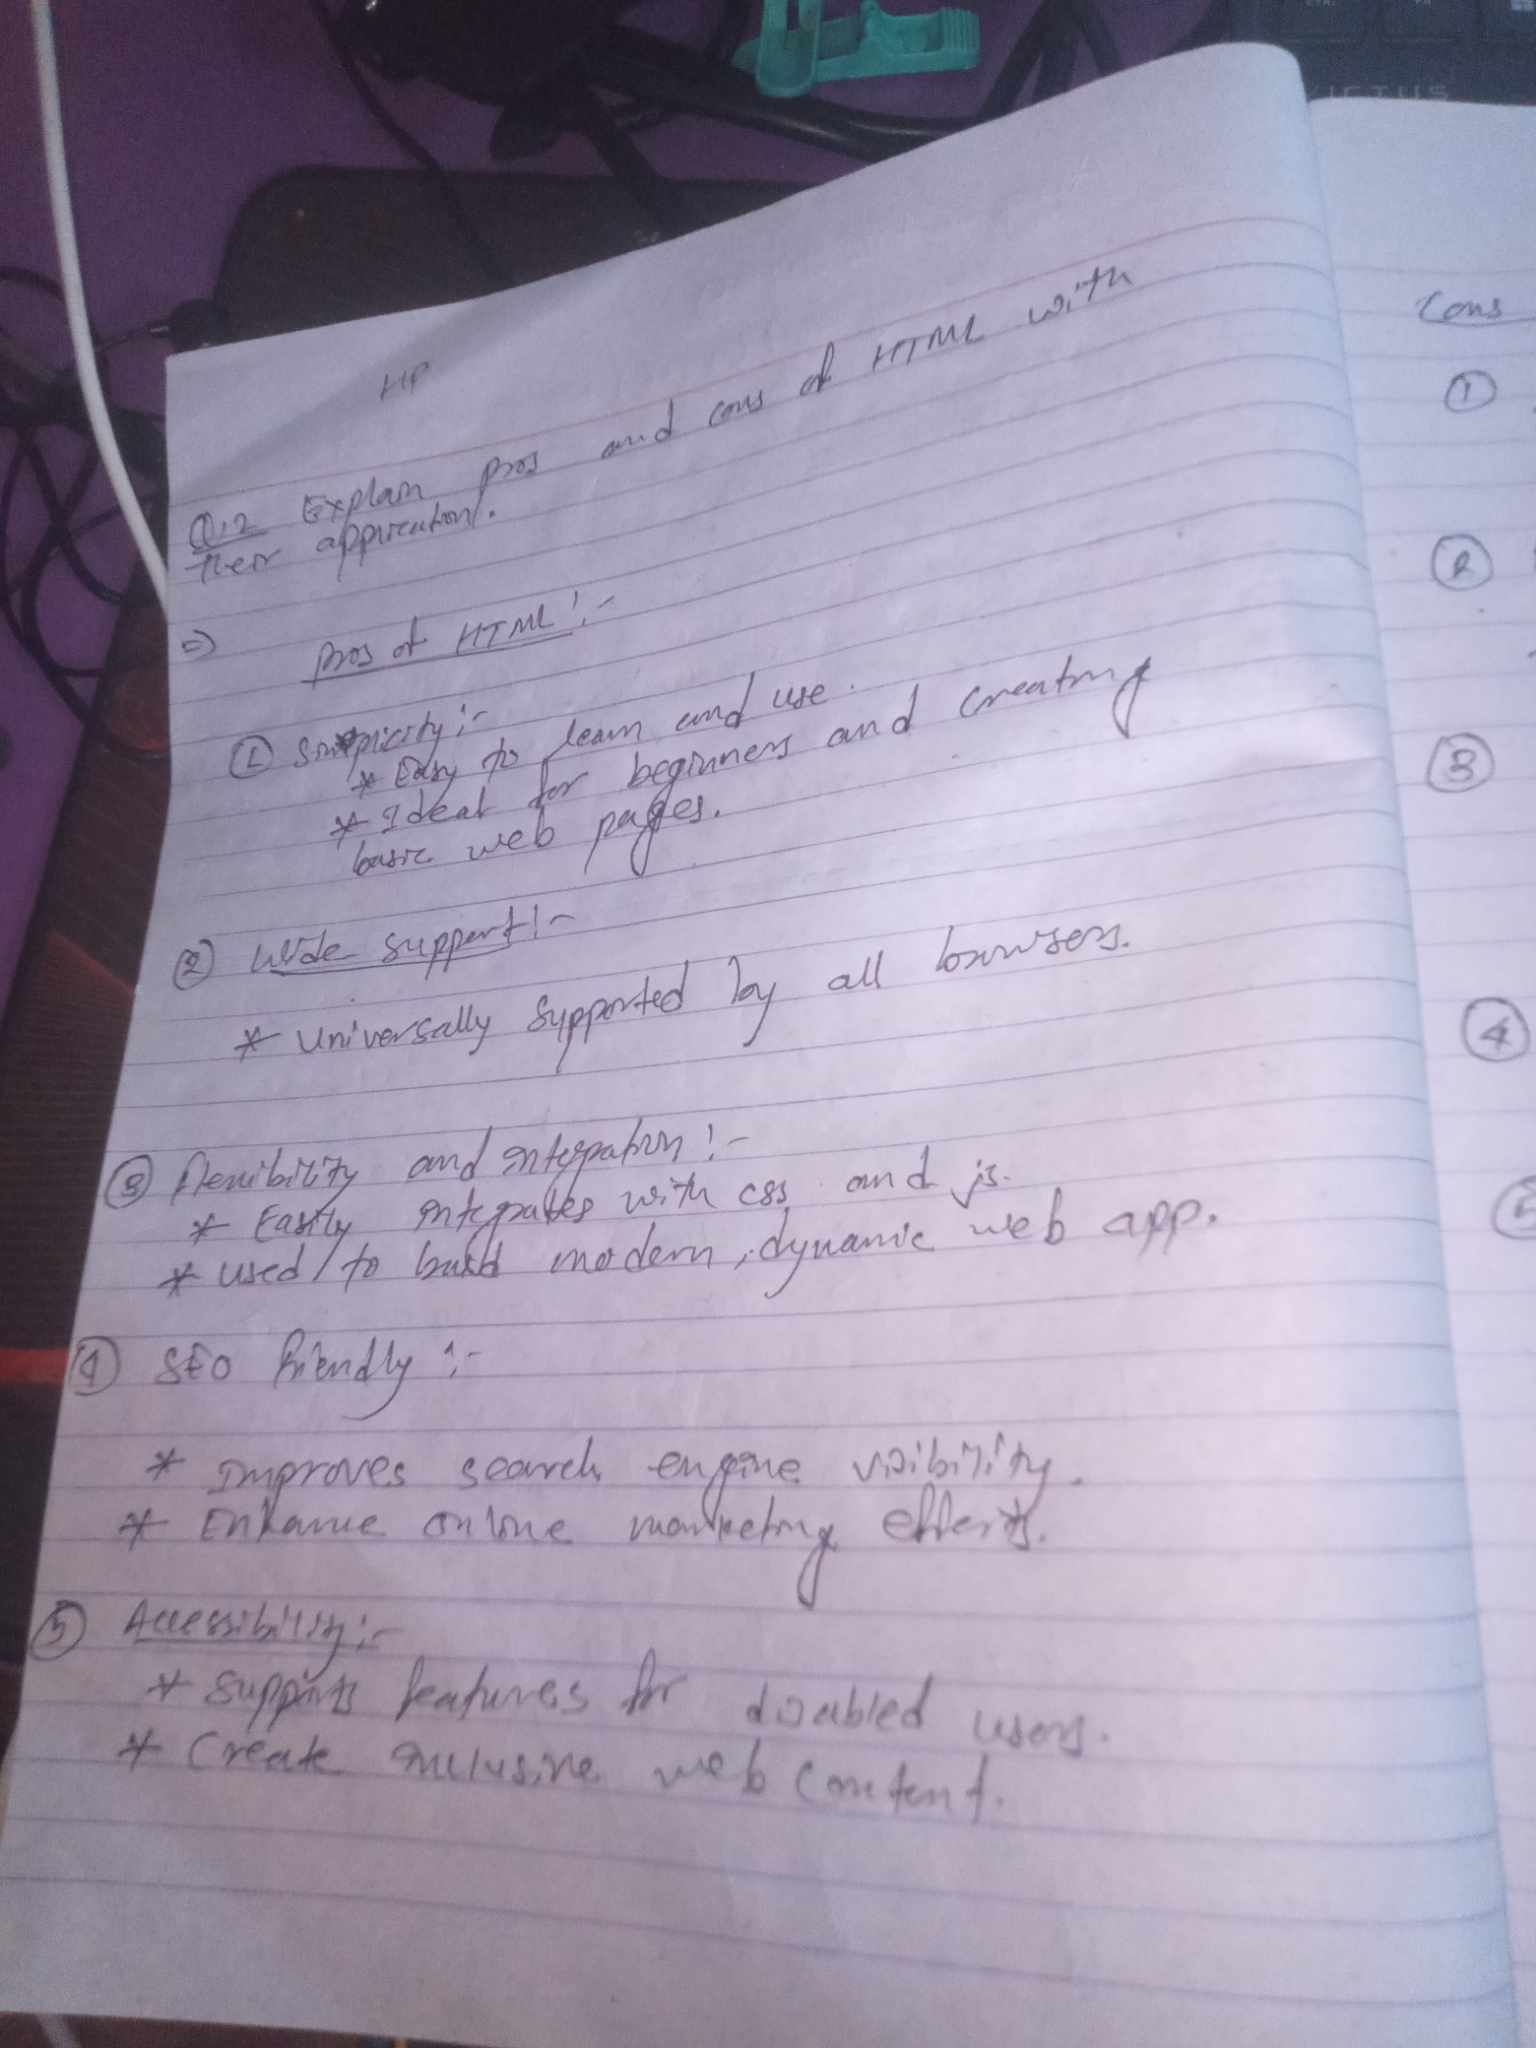 HP
Q.2 Explain pros and cons of HTML with
their application.
=) Pros of HTML :-
① Simplicity :-
* Easy to learn and use.
* Ideal for beginners and creating
basic web pages.
② Wide support :-
* Universally supported by all browsers.
③ flexibility and integration :-
* Easily integrates with css and js.
* used to build modern, dynamic web app.
④ SEO friendly :-
* Improves search engine visibility.
* Enhance online marketing efforts.
⑤ Accessibility :-
* Supports features for disabled users.
* Create inclusive web content.
Cons
①
②
③
④
⑤
VICTUS